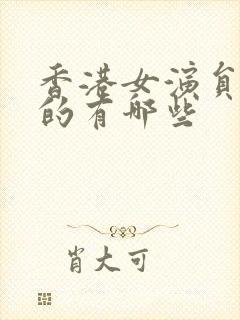 香港女演员
的有哪些
肖大可